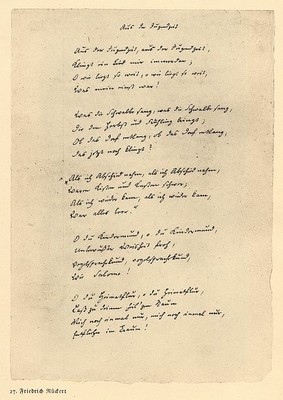 Aus der Jugendzeit
Aus der Jugendzeit, aus der Jugendzeit,
Klingt ein Lied mir immerdar;
O wie liegt so weit, o wie liegt so weit,
Was mein einst war!
Was die Schwalbe sang, was die Schwalbe sang,
Die den Herbst und Frühling bringt;
Ob das Dorf entlang, ob das Dorf entlang,
Das jetzt noch klingt?
„Als ich Abschied nahm, als ich Abschied nahm,
Waren Kisten und Kasten schwer;
Als ich wieder kam, als ich wieder kam,
War alles leer.“
O du Kindermund, o du Kindermund,
Unbewußter Weisheit froh,
Vogelsprachekund, vogelsprachekund,
Wie Salomo!
O du Heimatflur, o du Heimatflur,
Laß zu deinem heil'gen Raum
Mich noch einmal nur, mich noch einmal nur,
Entfliehn im Traum!
27. Friedrich Rückert